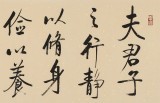 夫君子
之行静
以脩身
俭以養